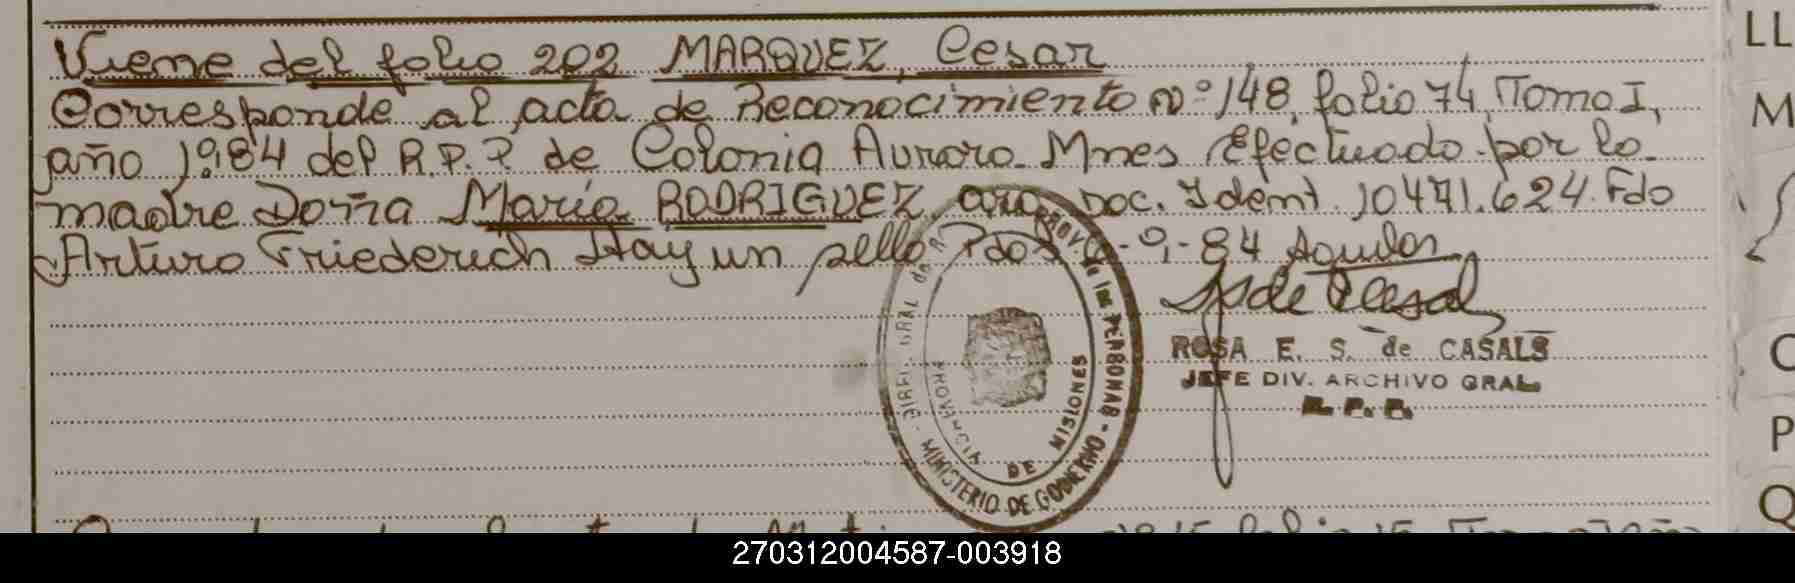 Viene del folio 202 MARQUEZ, Cesar
Corresponde al acta de Reconocimiento Nº 148, folio 74, Tomo I,
año 1984 del R.P.P. de Colonia Aurora. Mnes Efectuado por la
madre Doña María RODRIGUEZ, arg. Doc. Ident. 10471.624. Fdo
Arturo Friederich Hay un sello Pdos -9-84
DIREC. GRAL de R. PROV. de las PERSONAS - MINISTERIO DE GOBIERNO -
PROVINCIA DE MISIONES
ROSA E. S. de CASALS
JEFE DIV. ARCHIVO GRAL
R. P. P.
LL
M
C
P
Q
270312004587-003918